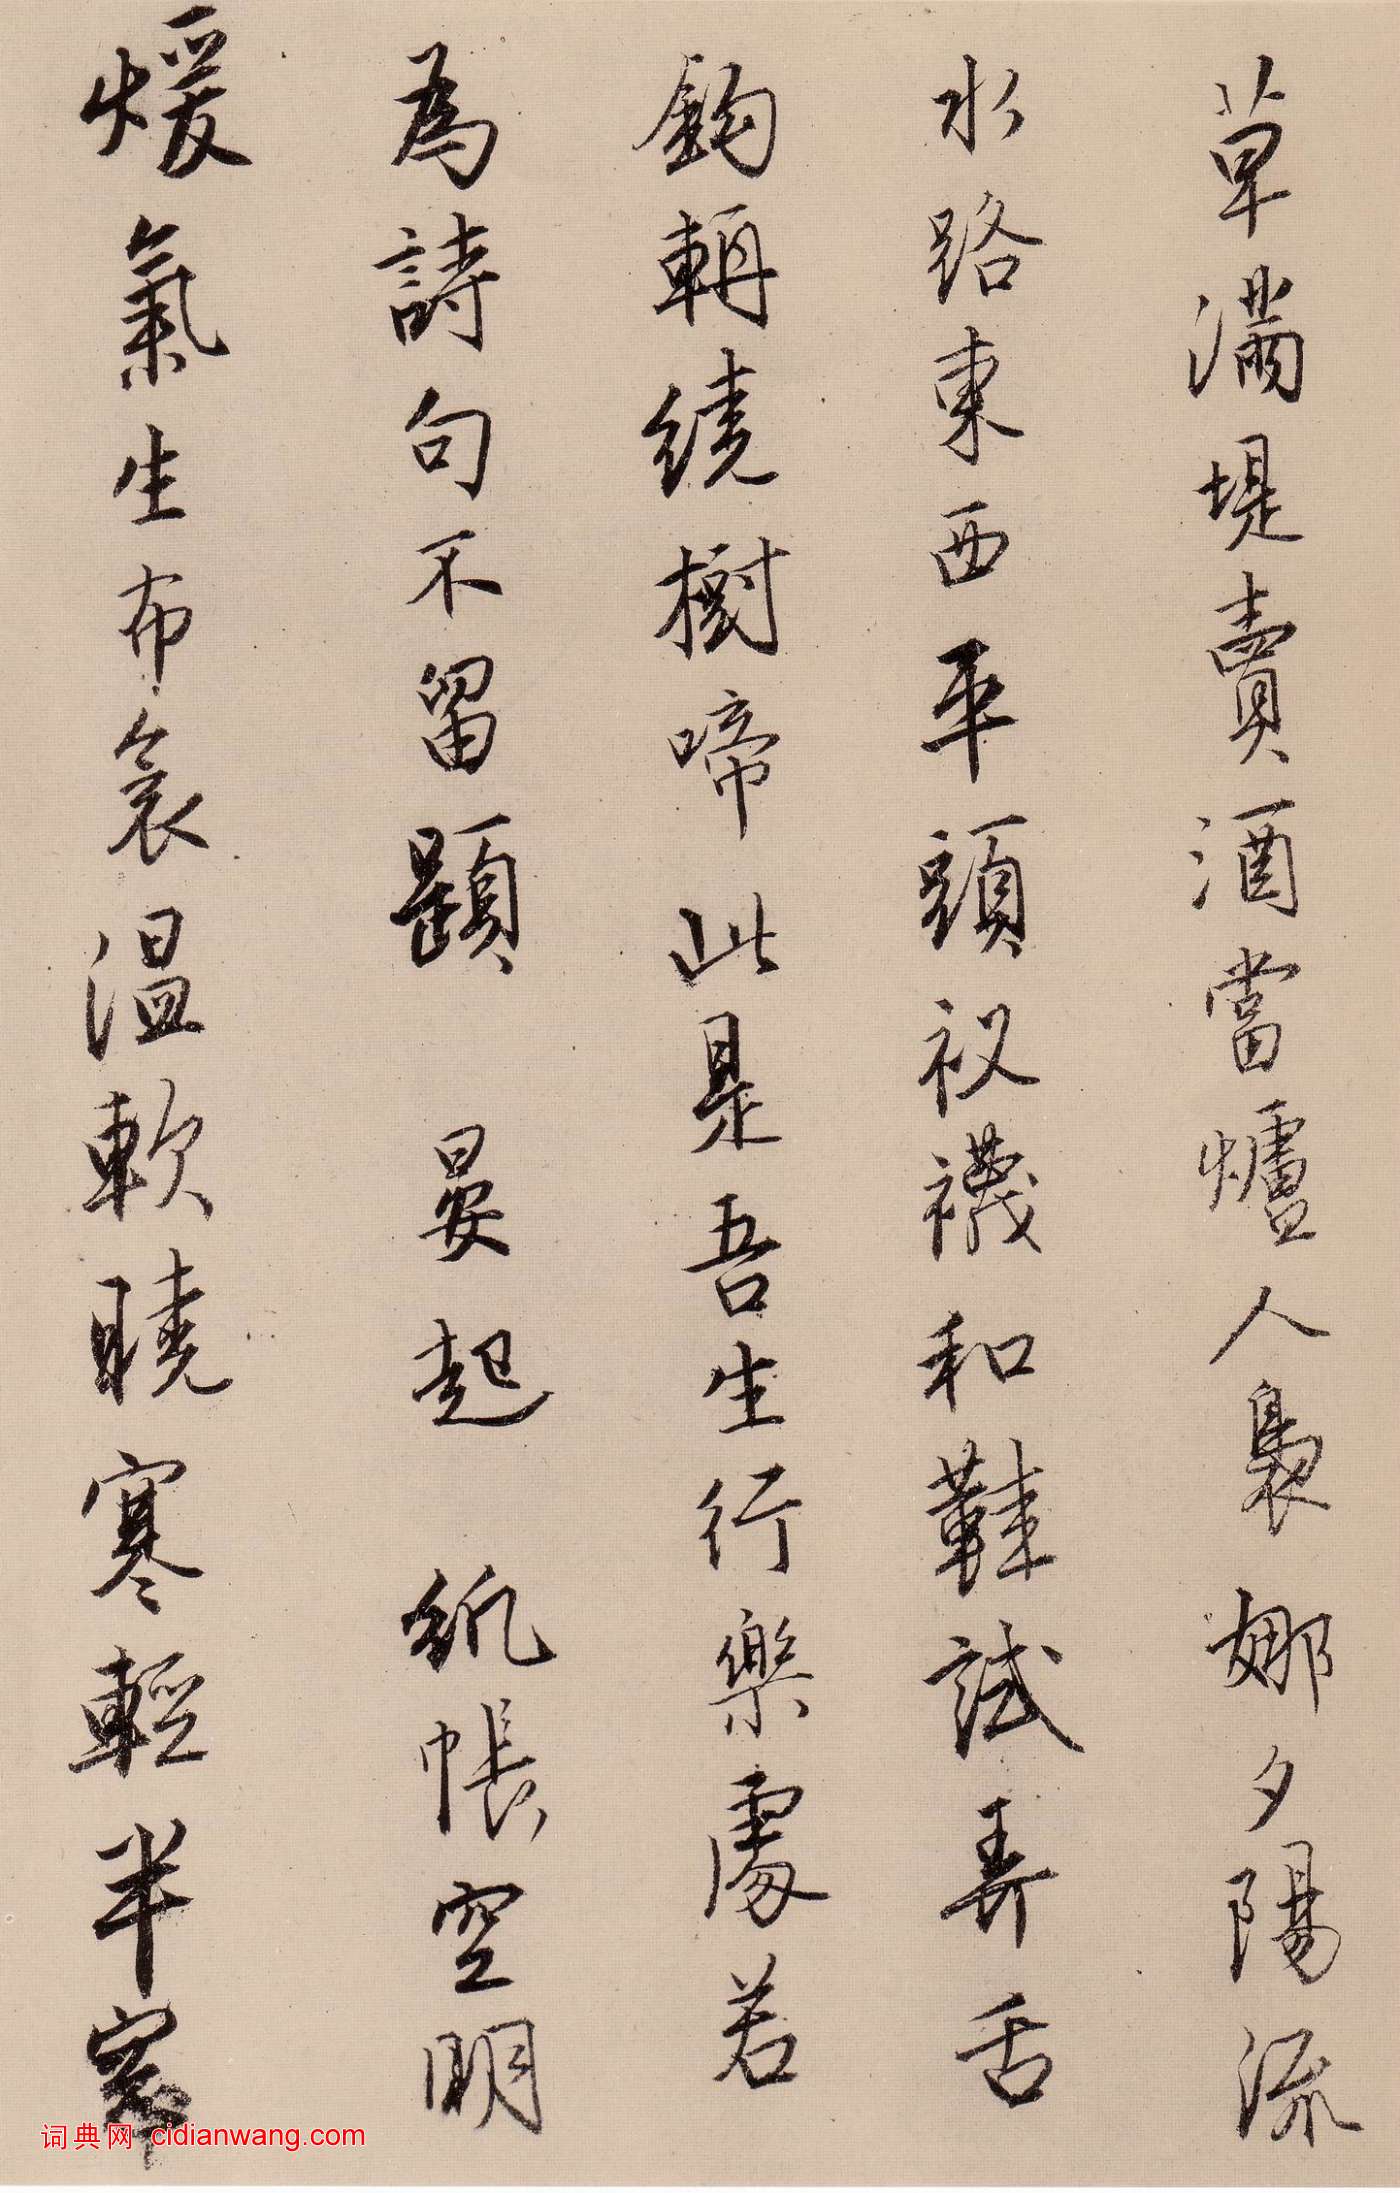 草滿堤賣酒當爐人裊娜夕陽流
水路東西平頭衩襪和鞋試弄舌
鉤輈繞樹啼此是吾生行樂處若
為詩句不留題 晏起 紙帳空明
煖氣生布衾温軟曉寒輕半窗
词典网 cidianwang.com